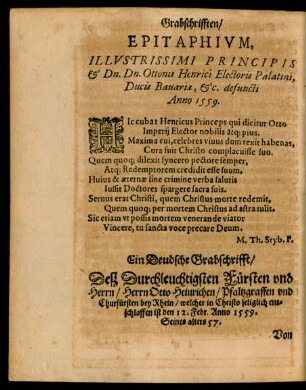 Grabschrifften/
EPITAPHIVM,
ILLVSTRISSIMI PRINCIPIS
& Dn. Dn. Ottonis Henrici Electoris Palatini,
Ducis Bavariæ, &c. defuncti
Anno 1559.
HIc cubat Henricus Princeps qui dicitur Otto
Imperij Elector nobilis atq; pius.
Maxima cui, celebres vivus dum rexit habenas,
Cura fuit Christo complacuisse suo.
Quem quoq; dilexit syncero pectore semper,
Atq; Redemptorem credidit esse suum,
Huius & æternæ sine crimine verba salutis
Iussit Doctores spargere sacra suis.
Servus erat Christi, quem Christus morte redemit,
Quem quoq; per mortem Christus ad astra tulit.
Sic etiam vt possis mortem venerande viator
Vincere, tu sancta voce precare Deum.
M. Th. Sryb. F.
Ein Deudsche Grabschrifft/
Deß Durchleuchtigsten Fürsten vnd
Herrn/ Herrn Otto Heinrichen/ Pfaltzgraffen vnd
Churfürsten bey Rhein/ welcher in Christo seliglich ent-
schlaffen ist den 12. Febr. Anno 1559.
Seines alters 57.
Von